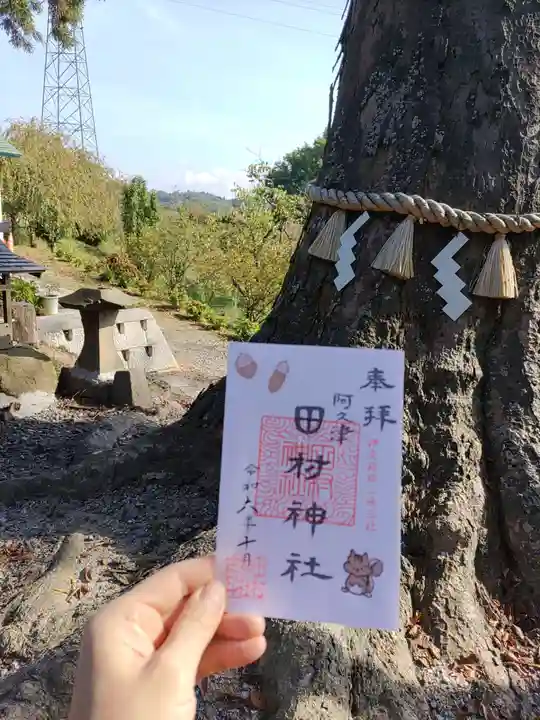 奉拝
阿久津
田村神社
令和六年十月